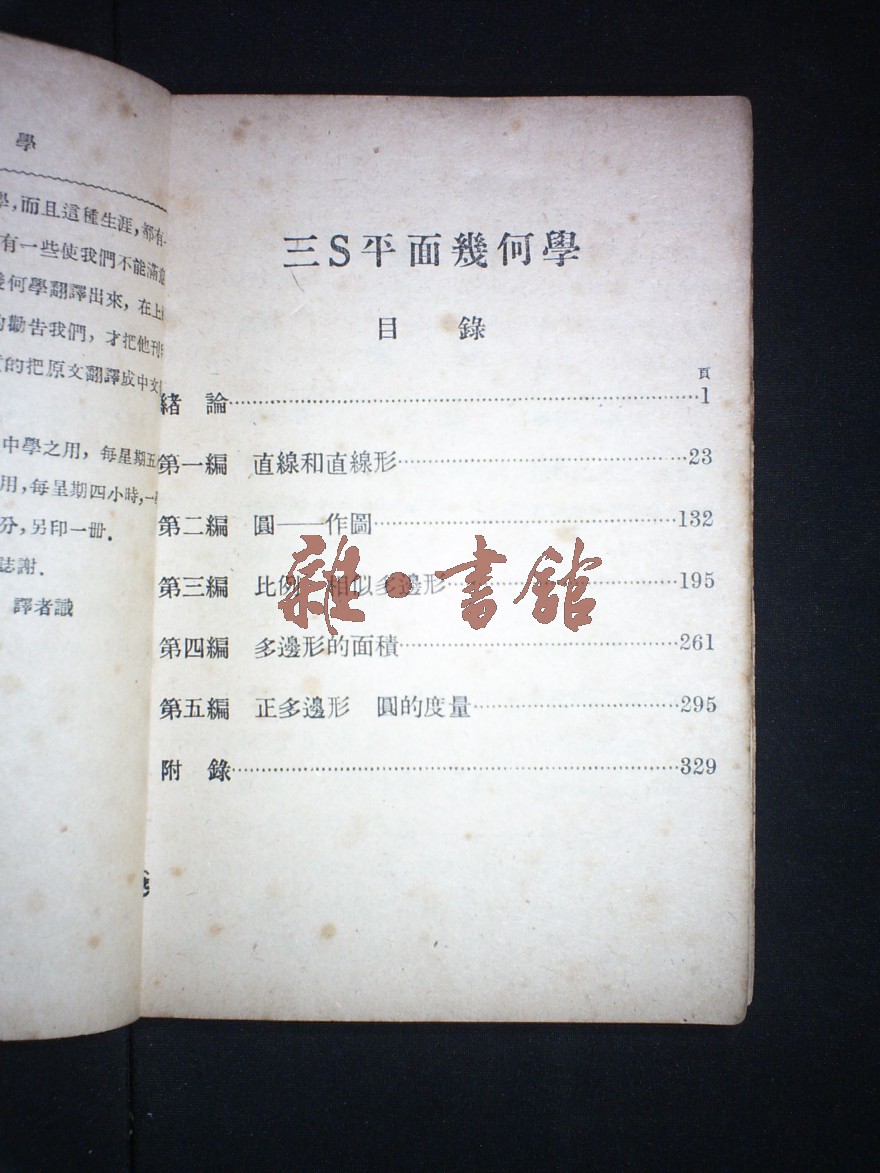 學
學,而且這種生涯,都有
有一些使我們不能滿意
何學翻譯出來,在上
勸告我們,才把他刊
的把原文翻譯成中文
中學之用,每星期五
用,每星期四小時,一
分,另印一册.
誌謝.
譯者識
三S平面幾何學
目 錄
頁
緒 論 1
第一編 直線和直線形 23
第二編 圓——作圖 132
第三編 比例 相似多邊形 195
第四編 多邊形的面積 261
第五編 正多邊形 圓的度量 295
附 錄 329
雜·書館